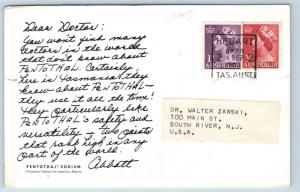 Dear Doctor:
You won't find many
doctors in the world
that don't know about
PENTOTHAL. Certainly
here in Tasmania they
know about PENTOTHAL—
they use it all the time!
They particularly like
PENTOTHAL'S safety and
versatility — two points
that rank high in any
part of the world.
Abbott
PENTOTHAL® SODIUM
(Thiopental Sodium for Injection, Abbott)
HOBART
TAS. AUST
AUSTRALIA
DR. WALTER ZARSKI,
100 MAIN ST.
SOUTH RIVER, N.J.
U.S.A.